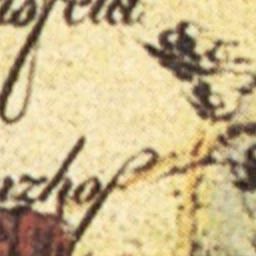 sfeld
nzhof